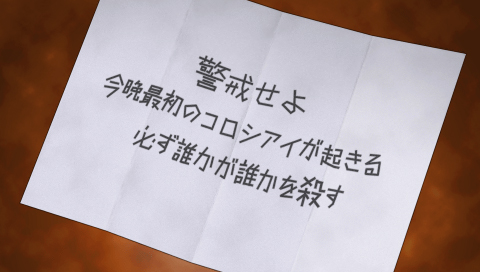 警戒せよ
今晩最初のコロシアイが起きる
必ず誰かが誰かを殺す